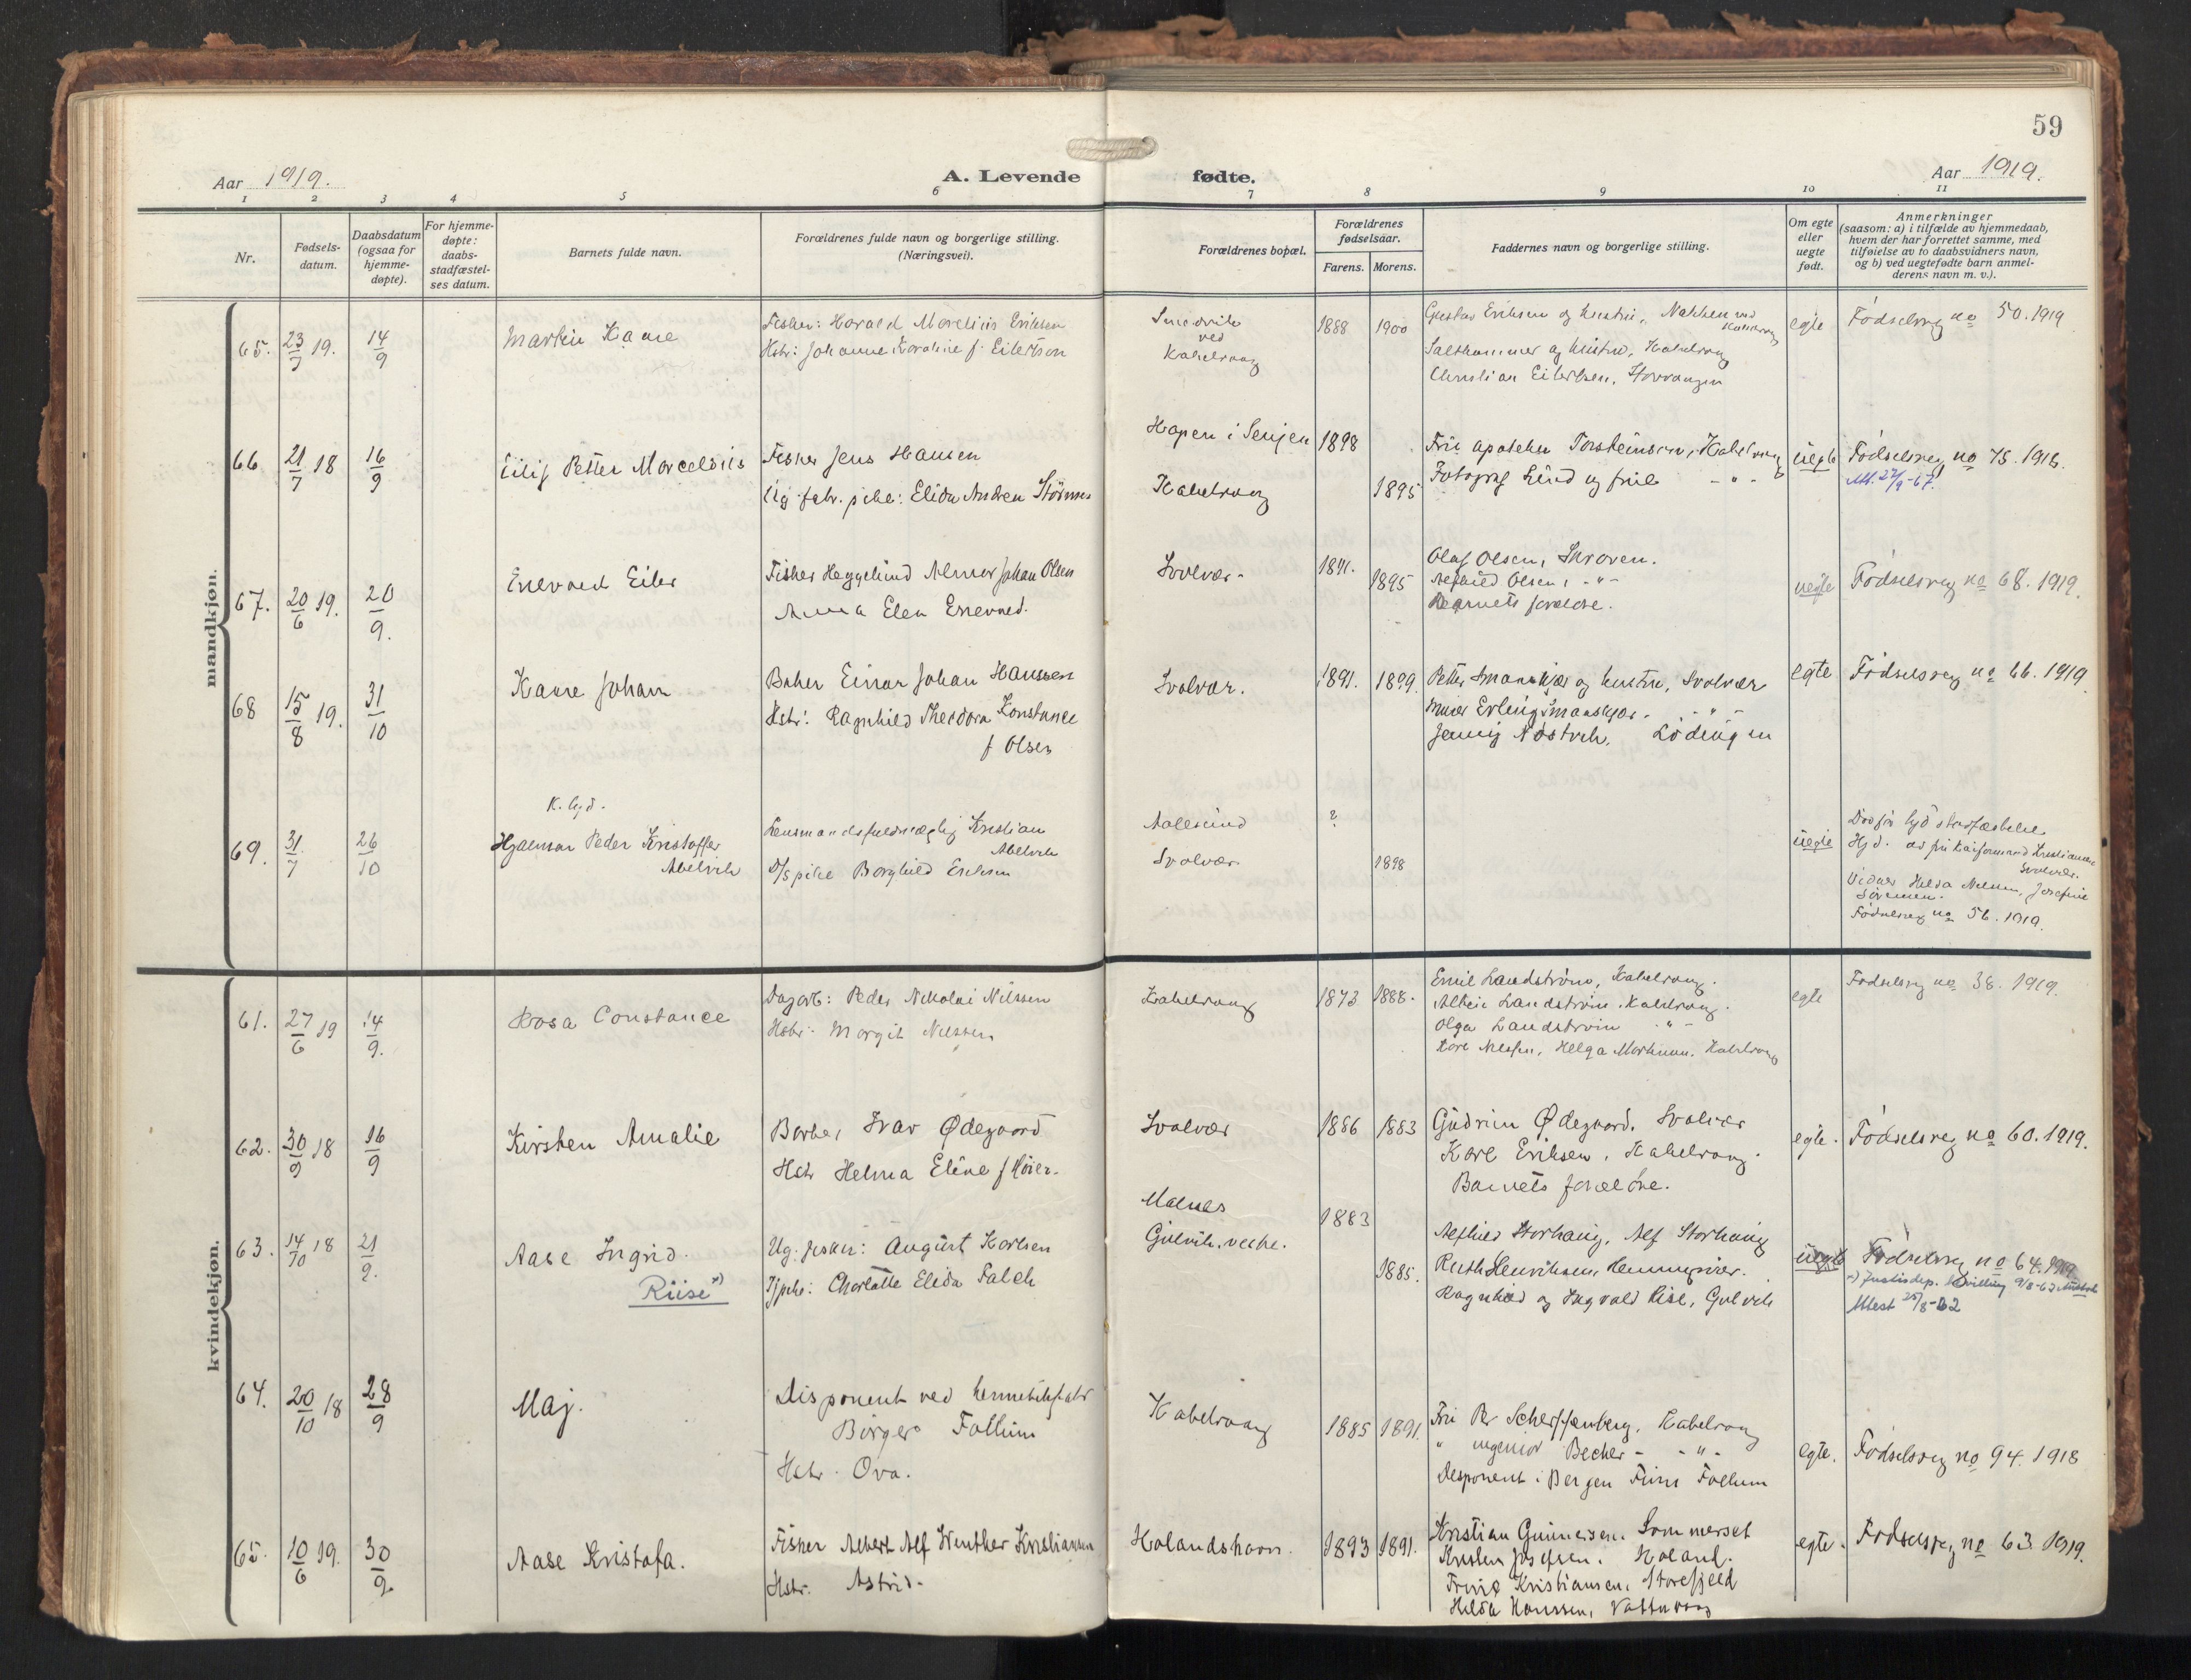 59
Aar 1919.
A. Levende fødte.
Aar 1919.
1 2 3 4 5 6 7 8 9 10 11
Nr.
Fødsels-
datum.
Daabsdatum
(ogsaa for
hjemme-
døpte).
For hjemme-
døpte:
daabs-
stadfæstel-
ses datum.
Barnets fulde navn.
Forældrenes fulde navn og borgerlige stilling.
(Næringsvei).
Forældrenes bopæl.
Forældrenes
fødselsaar.
Farens. Morens.
Faddernes navn og borgerlige stilling.
Om egte
eller
uegte
født.
Anmerkninger
(saasom: a) i tilfælde av hjemmedaab,
hvem der har forrettet samme, med
tilføielse av to daabsvidners navn,
og b) ved uegtefødte barn anmel-
derens navn m. v.).
mandkjøn.
65. 23/7 19. 14/9
Martin Kaare
Fisker: Harald Marelius Eriksen
Hstr: Johanne Karoline f. Eilertsen
ved
Kabelvaag
1888 1900
Gustav Eriksen og hustru,
og hustru, Kabelvaag
Christian Eilertsen, Storvaagen
egte
Fødselsreg no 50. 1919
66 21/7 18 16/9
Eilif Petter Marcelius
Fisker Jens Hansen
Ug fabr. pike: Elida Andrea
Hopen i Senjen
Kabelvaag
1898
1895
Fru apoteker Torsteinsen, Kabelvaag
Fotograf Lund og frue - " -
uegte
Fødselsreg no 75. 1918.
67. 20/6 19. 20/9.
Enevold Eiler
Fisker Heggelund Almar Johan Olsen
Anna Elen Enevold.
Svolvær.
1891.
1895
Olaf Olsen, Skroven.
Alfhild Olsen, - " -
Barnets forældre.
uegte
Fødselsreg no 68. 1919.
68 15/8 19. 31/10
Kaare Johan
Baker Einar Johan Hanssen
Hstr: Ragnhild Theodora Konstance
f Olsen
Svolvær.
1891. 1899.
Petter Smaaskjær og hustru, Svolvær
Erling Smaaskjær. - " -
Jenny Nøstvik, Lødingen
egte
Fødselsreg no 66. 1919.
69. 31/7 26/10
Hjalmar Peder Kristoffer
Abelvik
Lensmandsfuldmægtig Kristian
Abelvik
Borghild Eriksen
Aalesund
Svolvær
?
1898
uegte
Død før stadfæstelse
Hjd. av fru Kristiansen
Svolvær.
Vidner Helda Nilsen, Josefine
Sørensen.
Fødselsreg no 56. 1919.
kvindekjøn.
61. 27/6 19 14/9.
Rosa Constance
Dagarb: Peder Nikolai Nilssen
Hstr. Margit Nilssen
Kabelvaag
1873 1888.
Emil Landstrøm, Kabelvaag.
Landstrøm. Kabelvaag.
Olga Landstrøm - " -
Tore Nilssen, Helga Martinsen. Kabelvaag
egte
Fødselsreg no 38. 1919.
62. 30/9 18 16/9
Kirsten Amalie
Barber Ivar Ødegaard
Hstr Helma Eline f Høier.
Svolvær
1886 1883
Gudrun Ødegaard. Svolvær
Karl Eriksen, Kabelvaag.
Barnets forældre.
egte.
Fødselsreg no 60. 1919.
63. 14/10 18 21/9.
Aase Ingrid.
Riise x)
Ug. fisker: August Karlsen
Tjpike: Charlotte Elida Falch
Malnes
Gulvik,
1883
1885.
Alfhild Storhaug, Alf Storhaug
Ruth Henriksen, Henningsvær.
Ragnhild og Ingvald Riise, Gulvik
uegte
Fødselsreg no 64. 1919
x) Justisdep. bevilling 9/8-62
Attest 25/8-62
64. 20/10 18 28/9
Maj.
Disponent ved hermetikfabr
Birger Follum
Hstr. Ova.
Kabelvaag
1885 1891.
Fru Per Scherffenberg, Kabelvaag
" ingeniør Becker - " -
Disponent i Bergen Finn Follum
egte.
Fødselsreg no 94. 1918
65. 10/6 19. 30/9
Aase Kristofa.
Fisker Albert Alf Winther Kristiansen
Hstr. Astrid.
Holandshavn.
1893 1891.
Kristian Gunnersen. Sommerset
Kristen Josefsen. Holand.
Kristiansen, Storefjeld
Hilda Hanssen,
egte.
Fødselsreg no 63. 1919.